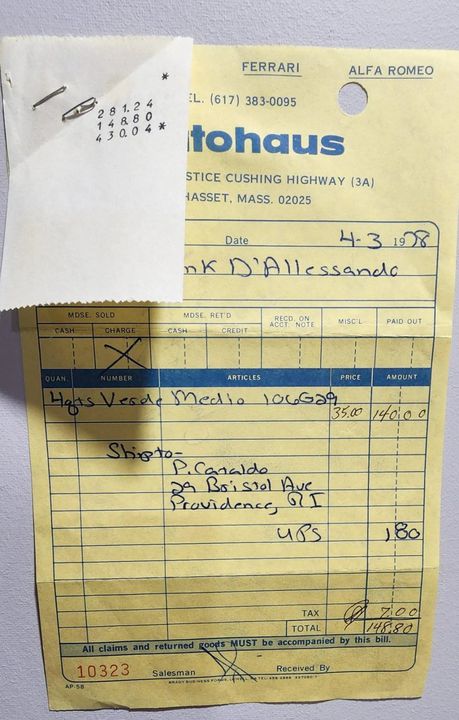 *
281.24
148.80
430.04 *
FERRARI ALFA ROMEO
EL. (617) 383-0095
tohaus
STICE CUSHING HIGHWAY (3A)
HASSET, MASS. 02025
Date 4-3 1978
nk D'Allessando
MDSE. SOLD MDSE. RET'D RECD. ON ACCT. NOTE MISC'L PAID OUT
CASH CHARGE CASH CREDIT
X
QUAN. NUMBER ARTICLES PRICE AMOUNT
4qts Verde Medio 106G29 35.00 140.00
Ship to-
P. Canaldo
29 Bristol Ave
Providence, RI
UPS 1.80
TAX 7.00
TOTAL 148.80
All claims and returned goods MUST be accompanied by this bill.
10323 Salesman Received By
AP-58 BRADY BUSINESS FORMS,